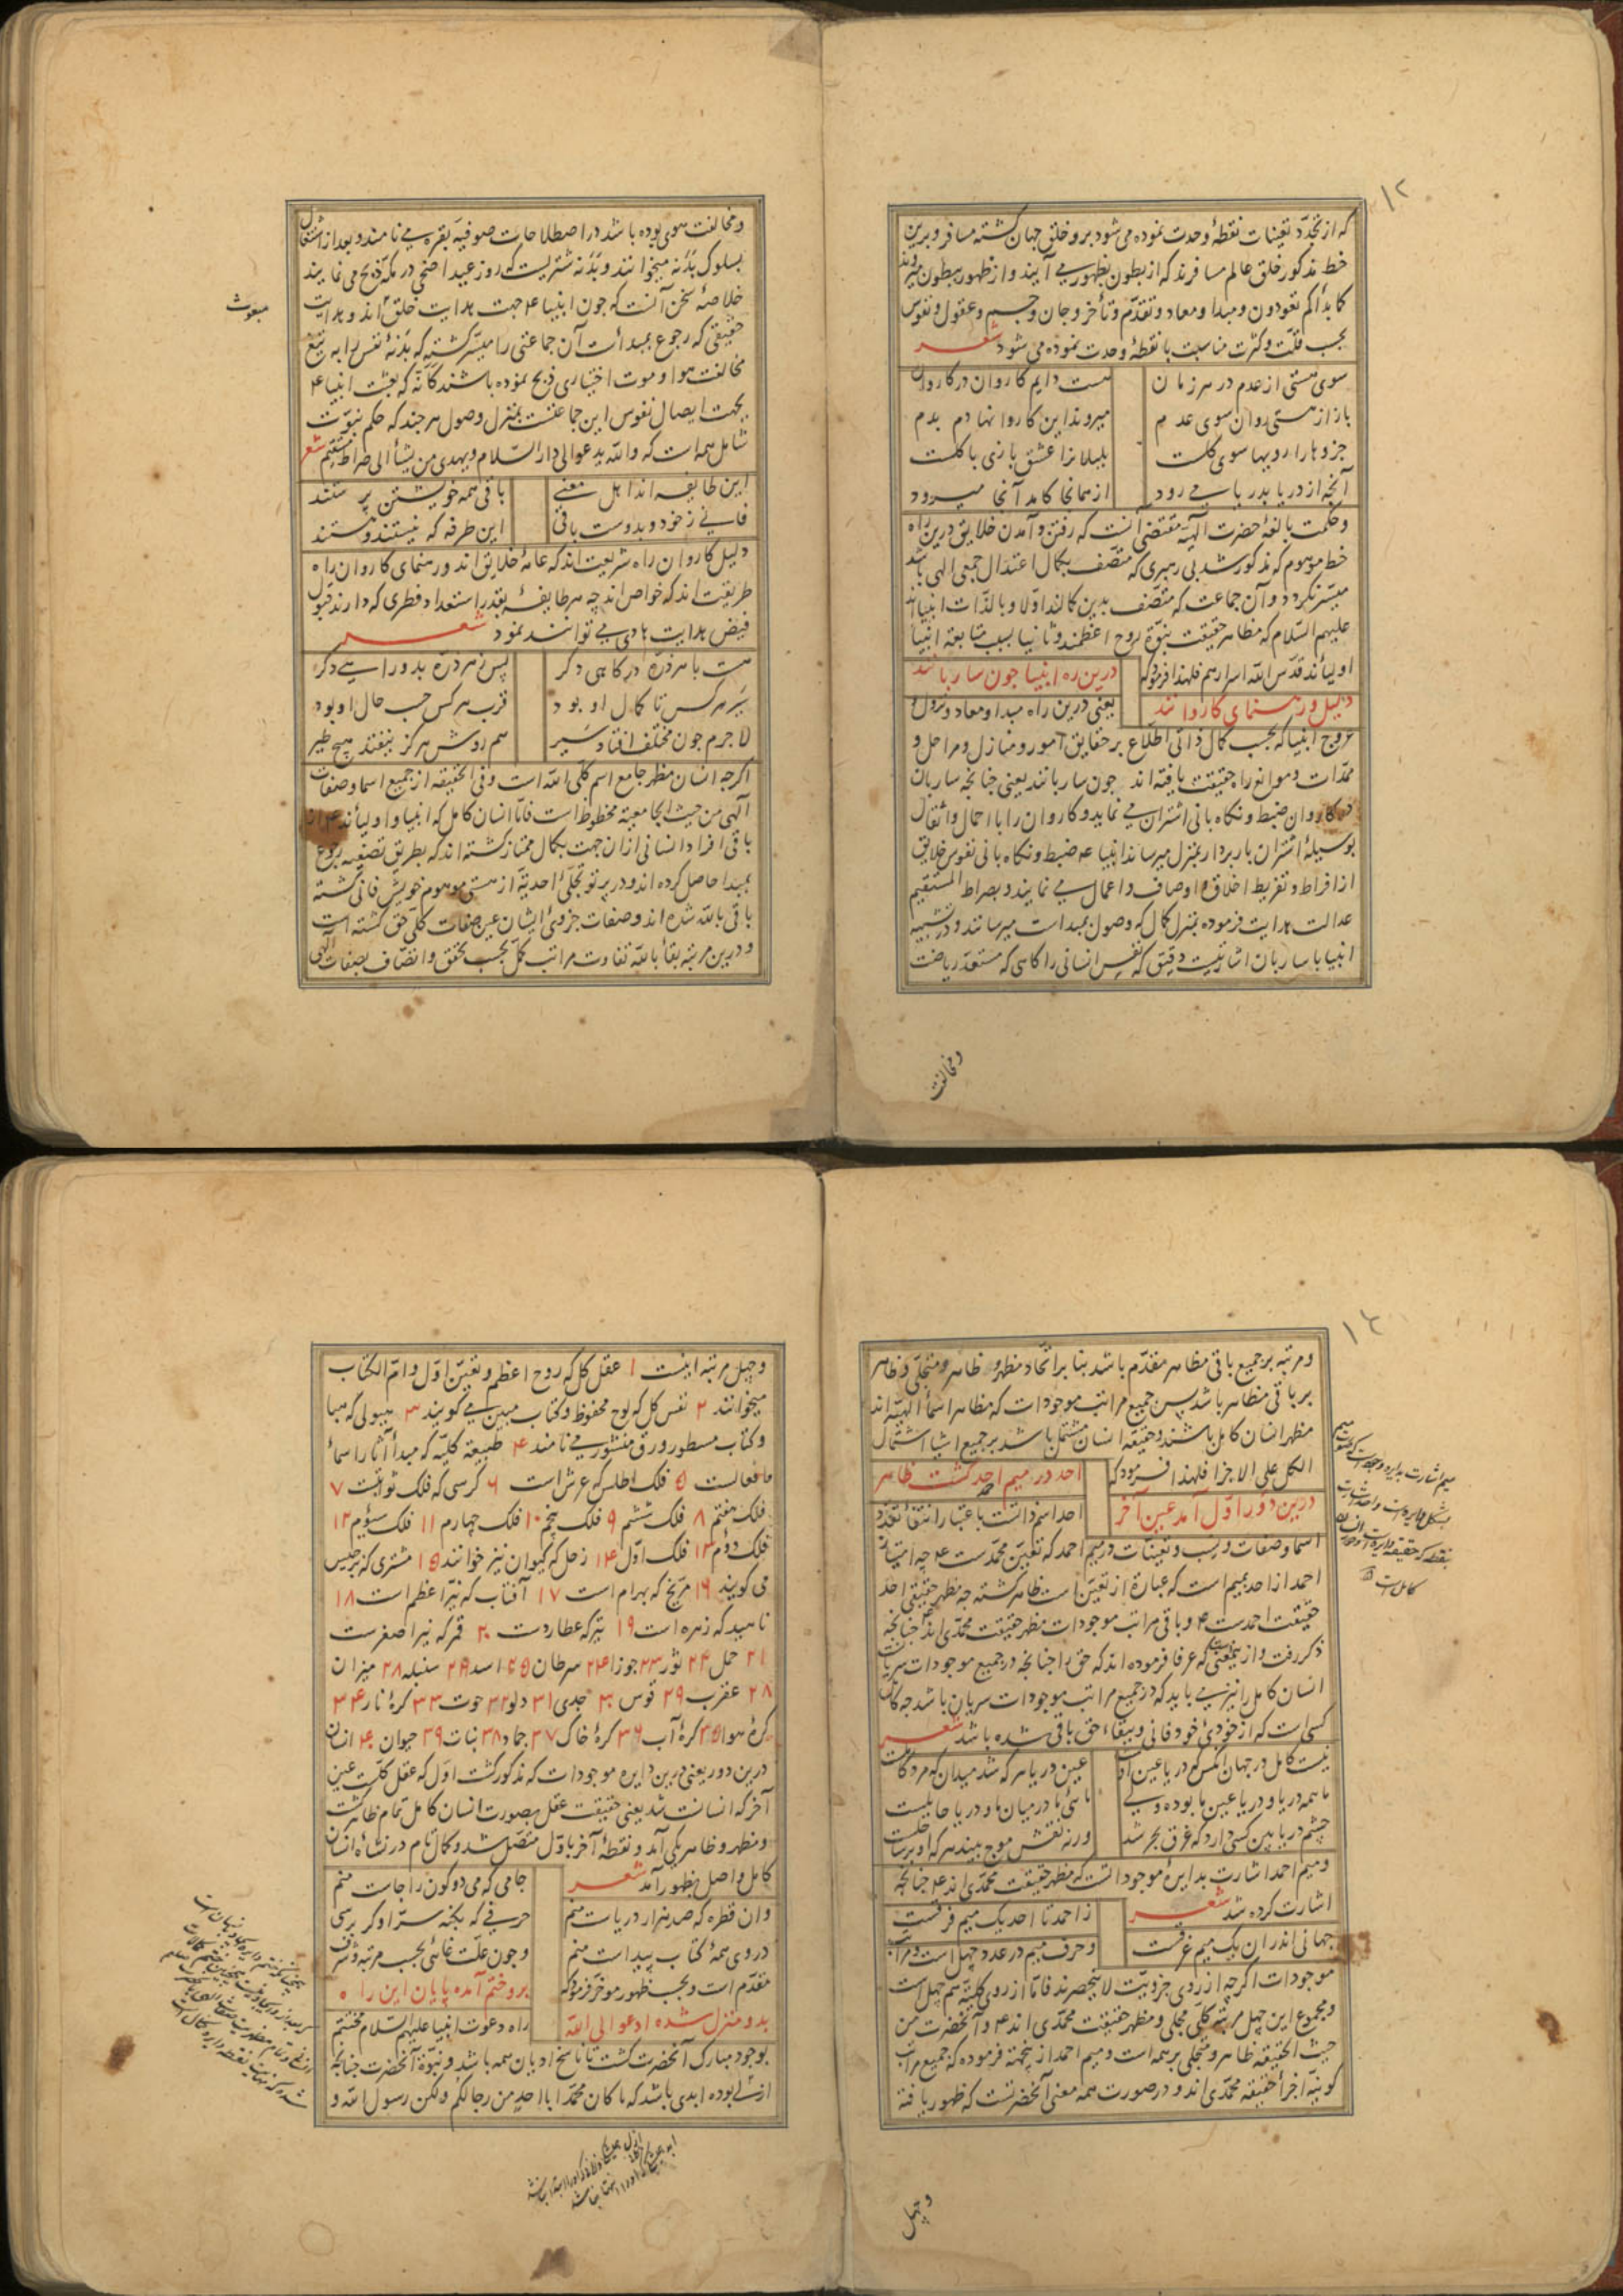 ۱۲
که از تجدّد تعینات نقطهٔ وحدت نموده می شود برو خلق جهان کشته مسافر و برین
خط مذکور خلق عالم مسافرند که از بطون بظهور می آیند و از ظهور ببطون میروند
کما بدأکم تعودون و مبدا و معاد و تقدّم و تأخر و جان و جسم و عقول و نفوس
بحسب قلّت و کثرت مناسبت با نقطهٔ وحدت نموده می شود شعر
سوی هستی از عدم در هر زمان هست دایم کاروان در کاروان
باز از هستی روان سوی عدم میروند این کاروانها دم بدم
جزوها را رویها سوی کلست بلبلانرا عشق بازی با کلست
آنچه از دریا بدریا می رود از همانجا کامد آنجا میرود
و حکمت بالغهٔ حضرت الهیّه مقتضی آنست که رفتن و آمدن خلایق درین راه
خط موهوم که مذکور شد بی رهبری که متّصف بکمال اعتدال جمعی الهی باشد
میسّر نکردد و آن جماعت که متّصف بدین کمالند اوّلا و بالذّات انبیااند
علیهم السّلام که مظاهر حقیقت نبوّة روح اعظمند و ثانیا بسبب متابعة انبیا
اولیااند قدّس الله اسرارهم فلهذا فرمود که درین ره انبیا چون ساربانند
دلیل و رهنمای کاروانند یعنی درین راه مبدا و معاد و نزول و
عروج انبیا که بحسب کمال ذاتی اطّلاع بر حقایق امور و منازل و مراحل و
ممدّات و موانع راه حقیقت یافته اند چون ساربانند یعنی چنانچه ساربان
در کاروان ضبط و نکاه بانی اشتران می نماید و کاروان را با احمال و اثقال
بوسیلهٔ اشتران باربردار بمنزل میرساند انبیا ع ضبط و نکاه بانی نفوس خلایق
از افراط و تفریط اخلاق و اوصاف و اعمال می نمایند و بصراط المستقیم
عدالت هدایت فرموده بمنزل کمال که وصول بمبداست میرسانند و در تشبیه
انبیا با ساربان اشارتیست دقیق که نفس انسانی را کاهی که مستعدّ ریاضت
و مخالفت
و مخالفت هوی بوده باشد در اصطلاحات صوفیه بقره می نامند و بعد از اشتغال
بسلوک بدنه میخوانند و بدنه شتریست که روز عید اضحی در مکه ذبح می نمایند
خلاصهٔ سخن آنست که چون انبیا ع جهت هدایت خلق اند و هدایت
مبعوث
حقیقی که رجوع بمبداست آن جماعتی را میسّر کشته که بدنهٔ نفس را به تیغ
مخالفت هوا و موت اختیاری ذبح نموده باشند کانّه که بعثت انبیا ع
بجهت ایصال نفوس این جماعتست بمنزل وصول هر چند که حکم نبوّت
شامل همه است که والله یدعوا الی دار السّلام و یهدی من یشأ الی صراط مستقیم شعر
این طایفه اند اهل معنی باقی همه خویشتن پرستند
فانی ز خود و بدوست باقی این طرفه که نیستند و هستند
دلیل کاروان راه شریعت اند که عامهٔ خلایق اند و رهنمای کاروان راه
طریقت اند که خواص اند چه هر طایفهٔ بقدر استعداد فطری که دارند قبول
فیض هدایت هادی می توانند نمود شعر
هست با هر ذرّه درکاهی دکر پس ز هر ذرّه بدو راهی دکر
سیر هر کس تا کمال او بود قرب هر کس حسب حال او بود
لاجرم چون مختلف افتاد سیر هم روش هرکز نیفتد هیچ طیر
اکرچه انسان مظهر جامع اسم کلّی الله است و فی الحقیقه از جمیع اسما و صفات
الهی من حیث الجامعیة محظوظ است فامّا انسان کامل که انبیا و اولیااند ع از
باقی افراد انسانی از ان جهت بکمال ممتاز کشته اند که بطریق تصفیه رجوع
بمبدا حاصل کرده اند و در پرتو تجلّی احدیة از هستی موهوم خویش فانی کشته
باقی بالله شده اند و صفات جزوی ایشان عین صفات کلّی حق کشته است
و درین مرتبه بقأ بالله تفاوت مراتب کمّل بحسب تحقق و اتصّاف بصفات الهی
۱۳
و مرتبه بر جمیع باقی مظاهر مقدّم باشد بنا بر اتّحاد مظهر و ظاهر و متجلّی و ظاهر
بر باقی مظاهر باشد پس جمیع مراتب موجودات که مظاهر اسمأ الهیّه اند
مظهر انسان کامل باشند و حقیقة انسان مشتمل باشد بر جمیع اشیا اشتمال
الکل علی الاجزا فلهذا فرمود که احد در میم احمد کشت ظاهر
درین دور اوّل آمد عین آخر احد اسم ذاتست باعتبار انتفأ تعدّد
اسما و صفات و نسب و تعیّنات و میم احمد که تعیّن محمّدست ع چه امتیاز
احمد از احد بمیم است که عبارة از تعیّن است ظاهر کشته چه مظهر حقیقی احد
حقیقت احمدست ع و باقی مراتب موجودات مظهر حقیقت محمّدی اند چنانچه
ذکر رفت و از ینجاست که عرفا فرموده اند که حق را چنانچه در جمیع موجودات سریان
انسان کامل را نیز می باید که در جمیع مراتب موجودات سریان باشد چه کامل
کسی است که از خودی خود فانی و ببقاء حق باقی شده باشد شعر
نیست کامل در جهان آنکس که دریا عین اوست عین دریا هر که شد میدان که مرد کاملست
ما همه دریا و دریا عین ما بوده ولی مائی ما در میان ما و دریا حایلست
چشم دریا بین کسی دارد که غرق بحر شد ورنه نقش موج بیند هر که او بر ساحلست
و میم احمد اشارت بدایرهٔ موجوداتست که مظهر حقیقت محمّدی اند ع چنانچه
اشارت کرده شد شعر ز احمد تا احد یک میم فرقست
جهانی اندر آن یک میم غرقست و حرف میم در عدد چهل است و مراتب
موجودات اکرچه از روی جزویّت لا ینحصرند فامّا از روی کلیّة هم چهل است
و مجموع این چهل مرتبهٔ کلی مجلی و مظهر حقیقت محمّدی اند ع و آنحضرت من
حیث الحقیقة ظاهر و متجلی بر همه است و میم احمد از ینجهة فرموده که جمیع مراتب
کونیّه اجزأ حقیقة محمّدی اند و در صورت همه معنی آنحضرتست که ظهور یافته
و چهل
و چهل مرتبه اینست ۱ عقل کل که روح اعظم و تعیّن اوّل و امّ الکتاب
میخوانند ۲ نفس کل که لوح محفوظ و کتاب مبین می کویند ۳ هیولی که هبا
و کتاب مسطور و رق منشور می نامند ۴ طبیعة کلیّه که مبدأ آثار اسمأ
فعالست ۵ فلک اطلس که عرش است ۶ کرسی که فلک ثوابتست ۷
فلک هفتم ۸ فلک ششم ۹ فلک پنجم ۱۰ فلک چهارم ۱۱ فلک سیؤم ۱۲
فلک دوّم ۱۳ فلک اوّل ۱۴ زحل که کیوان نیز خوانند ۱۵ مشتری که برجیس
می کویند ۱۶ مرّیخ که بهرام است ۱۷ آفتاب که نیّر اعظم است ۱۸
ناهید که زهره است ۱۹ تیر که عطاردست ۲۰ قمر که نیر اصغرست
۲۱ حمل ۲۲ ثور ۲۳ جوزا ۲۴ سرطان ۲۵ اسد ۲۶ سنبله ۲۸ میزان
۲۸ عقرب ۲۹ قوس ۳۰ جدی ۳۱ دلو ۳۲ حوت ۳۳ کرهٔ نار ۳۴
کرهٔ هوا ۳۵ کرهٔ آب ۳۶ کرهٔ خاک ۳۷ جماد ۳۸ نبات ۳۹ حیوان ۴۰ انسان
درین دور یعنی درین دایره موجودات که مذکور کشت اوّل که عقل کلّست عین
آخر که انسانست شد یعنی حقیقت عقل بصورت انسان کامل تمام ظاهر کشت
و مظهر و ظاهر یکی آمد و نقطهٔ آخر باوّل متّصل شد و کمال تام در نشأه انسان
کامل واصل بظهور آمد شعر جامی که می دو کون را جاست منم
وان قطره که صد هزار دریاست منم حرفی که بکنه سرّ او کر برسی
در وی همهٔ کتاب پیداست منم و چون علّت غائی بحسب مرتبه و شرف
مقدّم است و بحسب ظهور موخّر فرمود که برو ختم آمده پایان این راه
بدو منزل شده ادعوا الی الله راه دعوت انبیا علیهم السّلام مختتم
بوجود مبارک آنحضرت کشت تا ناسخ ادیان همه باشد و نبوّة آنحضرت چنانچه
ازلی بوده ابدی باشد که ما کان محمّد ابا احدٍ من رجالکم ولکن رسول الله و